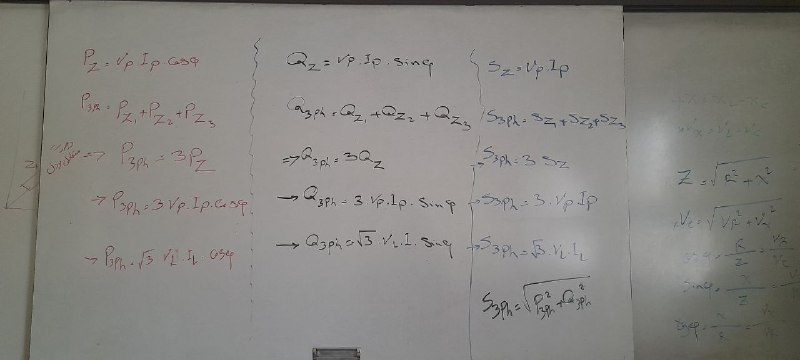 P_Z = Vp . Ip . cosφ
P_3ph = P_Z1 + P_Z2 + P_Z3
=> P_3ph = 3P_Z
→ P_3ph = 3 Vp . Ip . cosφ
→ P_3ph = √3 V_L . I_L . cosφ
Q_Z = Vp . Ip . sinφ
Q_3ph = Q_Z1 + Q_Z2 + Q_Z3
=> Q_3ph = 3Q_Z
→ Q_3ph = 3 Vp . Ip . sinφ
→ Q_3ph = √3 . V_L . I . sinφ
S_Z = Vp . Ip
S_3ph = S_Z1 + S_Z2 + S_Z3
→ S_3ph = 3 S_Z
→ S_3ph = 3 . Vp . Ip
→ S_3ph = √3 . V_L . I_L
S_3ph = √(P²_3ph + Q²_3ph)
Z = √(R² + X²)
cosφ = R/Z =
sinφ = X/Z =